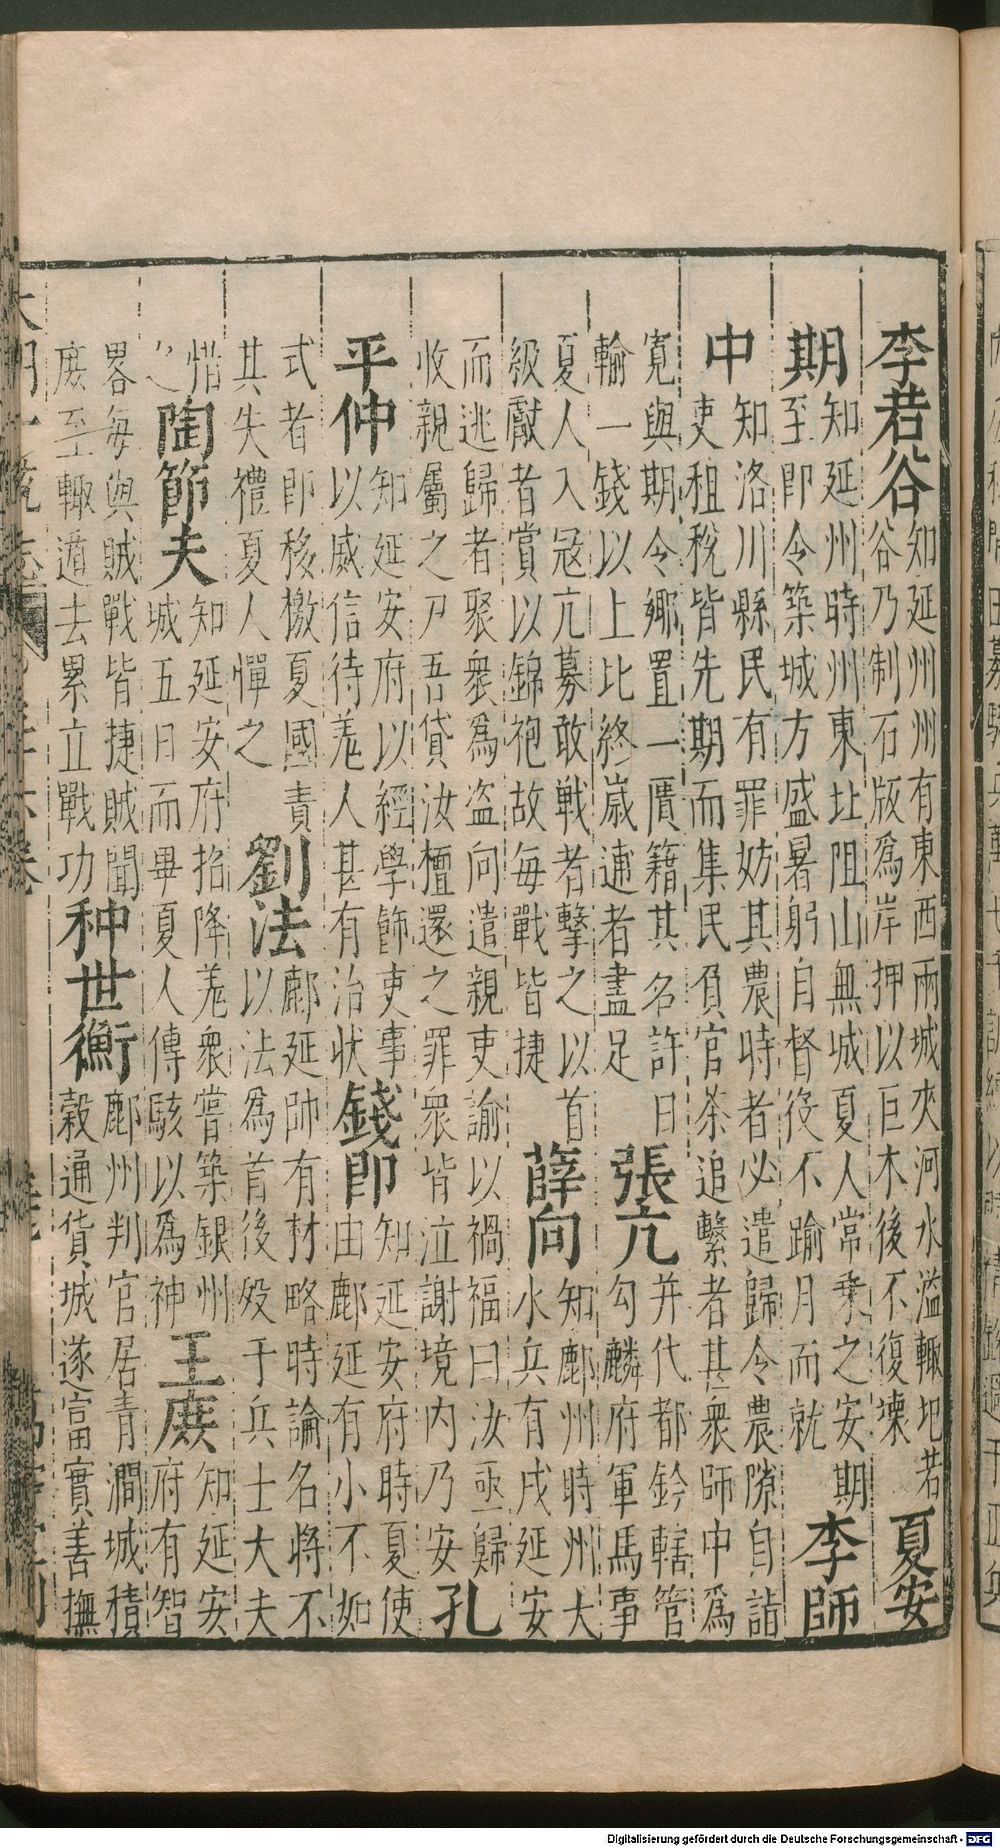 李若谷知延州州有東西兩城夾河水溢輙圯若
谷乃制石版為岸押以巨木後不復壊夏安
期知延州時州東北阻山無城夏人常乗之安期
至即令築城方盛暑躬自督役不踰月而就李師
中知洛川縣民有罪妨其農時者必遣歸令農隙自詣
吏租稅皆先期而集民負官茶追繫者甚衆師中為
寬與期令鄉置一匱籍其名許日
輸一錢以上比終歳逋者盡足張亢并代都鈐轄管
勾麟府軍馬事
夏人入冦亢募敢戦者擊之以首
級獻者賞以錦袍故每戰皆捷薛向知鄜州時州大
水兵有戍延安
而逃歸者聚衆為盗向遣親吏諭以禍福曰汝亟歸
收親屬之尹吾貸汝檀還之罪衆皆泣謝境内乃安孔
平仲知延安府以經學飾吏事
以威信待羗人甚有治状錢即知延安府時夏使
由鄜延有小不如
式者即移檄夏國責
其失禮夏人憚之劉法鄜延帥有材略時論名将不
以法為首後殁于兵士大夫
惜
之陶節夫知延安府招降羗衆嘗築銀州
城五日而畢夏人傳駭以為神王庶知延安
府有智
畧每與賊戰皆捷賊聞
庶至輙遁去累立戰功种世衡鄜州判官居青澗城積
榖通貨城遂富實善撫
Digitalisierung gefördert durch die Deutsche Forschungsgemeinschaft - DFG